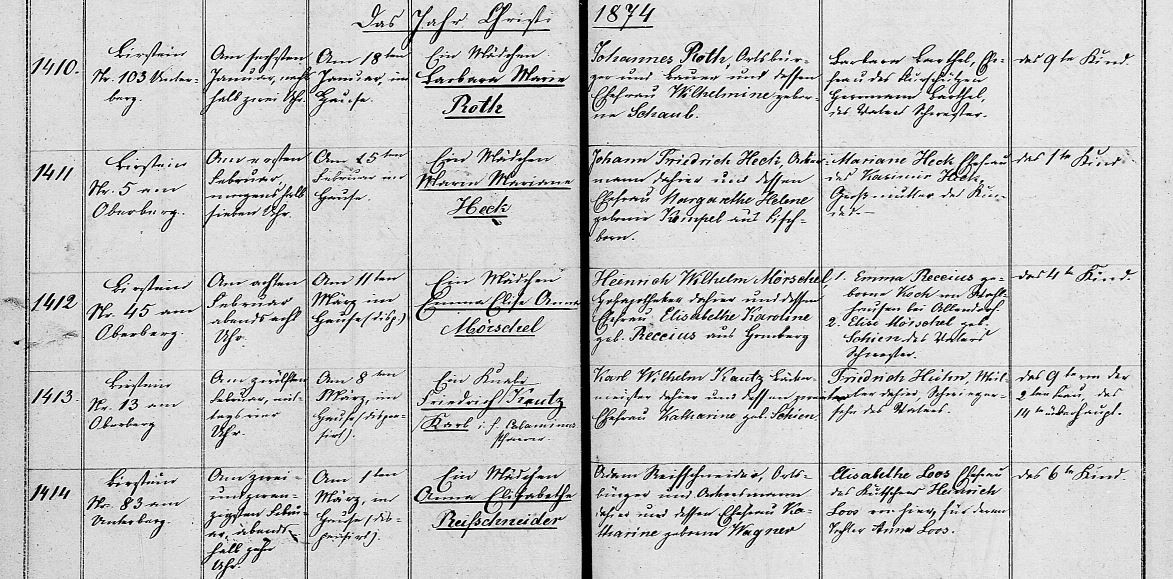 Das Jahr Christi 1874
1410.
Birstein
Nr. 103 Unter-
berg.
Am sechsten
Januar, nachts
halb zwei Uhr.
Am 18ten
Januar, im
Hause.
Ein Mädchen
Barbara Marie
Roth
Johannes Roth, Ortsbür-
ger und Bauer und dessen
Ehefrau Wilhelmine gebor-
ne Schaub.
Barbara Barthel, Ehe-
frau des
Herrmann Barthel,
des Vaters Schwester.
das 9te Kind.
1411
Birstein
Nr. 5 am
Oberberg.
Am ersten
Februar,
morgens halb
sieben Uhr.
Am 15ten
Februar im
Hause.
Ein Mädchen
Marie Mariane
Heck
Johann Friedrich Heck, Acker-
mann, dahier und dessen
Ehefrau Margarethe Helene
geborene Kimpel aus Fisch-
born.
Mariane Heck Ehefrau
des Kasimir Heck,
Großmutter des Kin-
des.
das 1te Kind
1412
Birstein
Nr. 45 am
Oberberg.
Am achten
Februar
abends acht
Uhr.
Am 11ten
März im
Hause (disp.)
Ein Mädchen
Emma Elise Anna
Mörschel
Heinrich Wilhelm Mörschel
Hofapotheker dahier und dessen
Ehefrau Elisabethe Karoline
geb. Receius aus Homberg
1. Emma Receius ge-
borene Koch
hausen bei Allendorf.
2. Elise Mörschel geb.
Schien des Vaters
Schwester.
das 4te Kind.
1413.
Birstein
Nr. 13 am
Oberberg
Am zwölften
Februar, mit-
tags vier
Uhr.
Am 8ten
März, im
Hause (dispen-
sirt).
Ein Knabe
Friedrich Kautz
Karl
Calaminus
Pfarrer.
Karl Wilhelm Kautz
meister dahier und dessen zweite
Ehefrau Katharine geb. Schien.
Friedrich Hühn,
dahier, Schwieger-
sohn des Vaters.
das 9te von der
2ten Frau, das
14te überhaupt.
1414
Birstein
Nr. 83 am
Unterberg.
Am zwei-
undzwan-
zigsten Febru-
ar, abends
halb zehn
Uhr.
Am 1ten
März, im
Hause (dis-
pensirt).
Ein Mädchen
Anna Elisabethe
Reifschneider
Adam Reifschneider, Orts-
bürger und Ackermann
dahier und dessen Ehefrau Ka-
tharine geborene Wagner
Elisabethe Loos Ehefrau
des Kutschers Heinrich
Loos von hier, für deren
Tochter Anna Loos.
das 6te Kind.